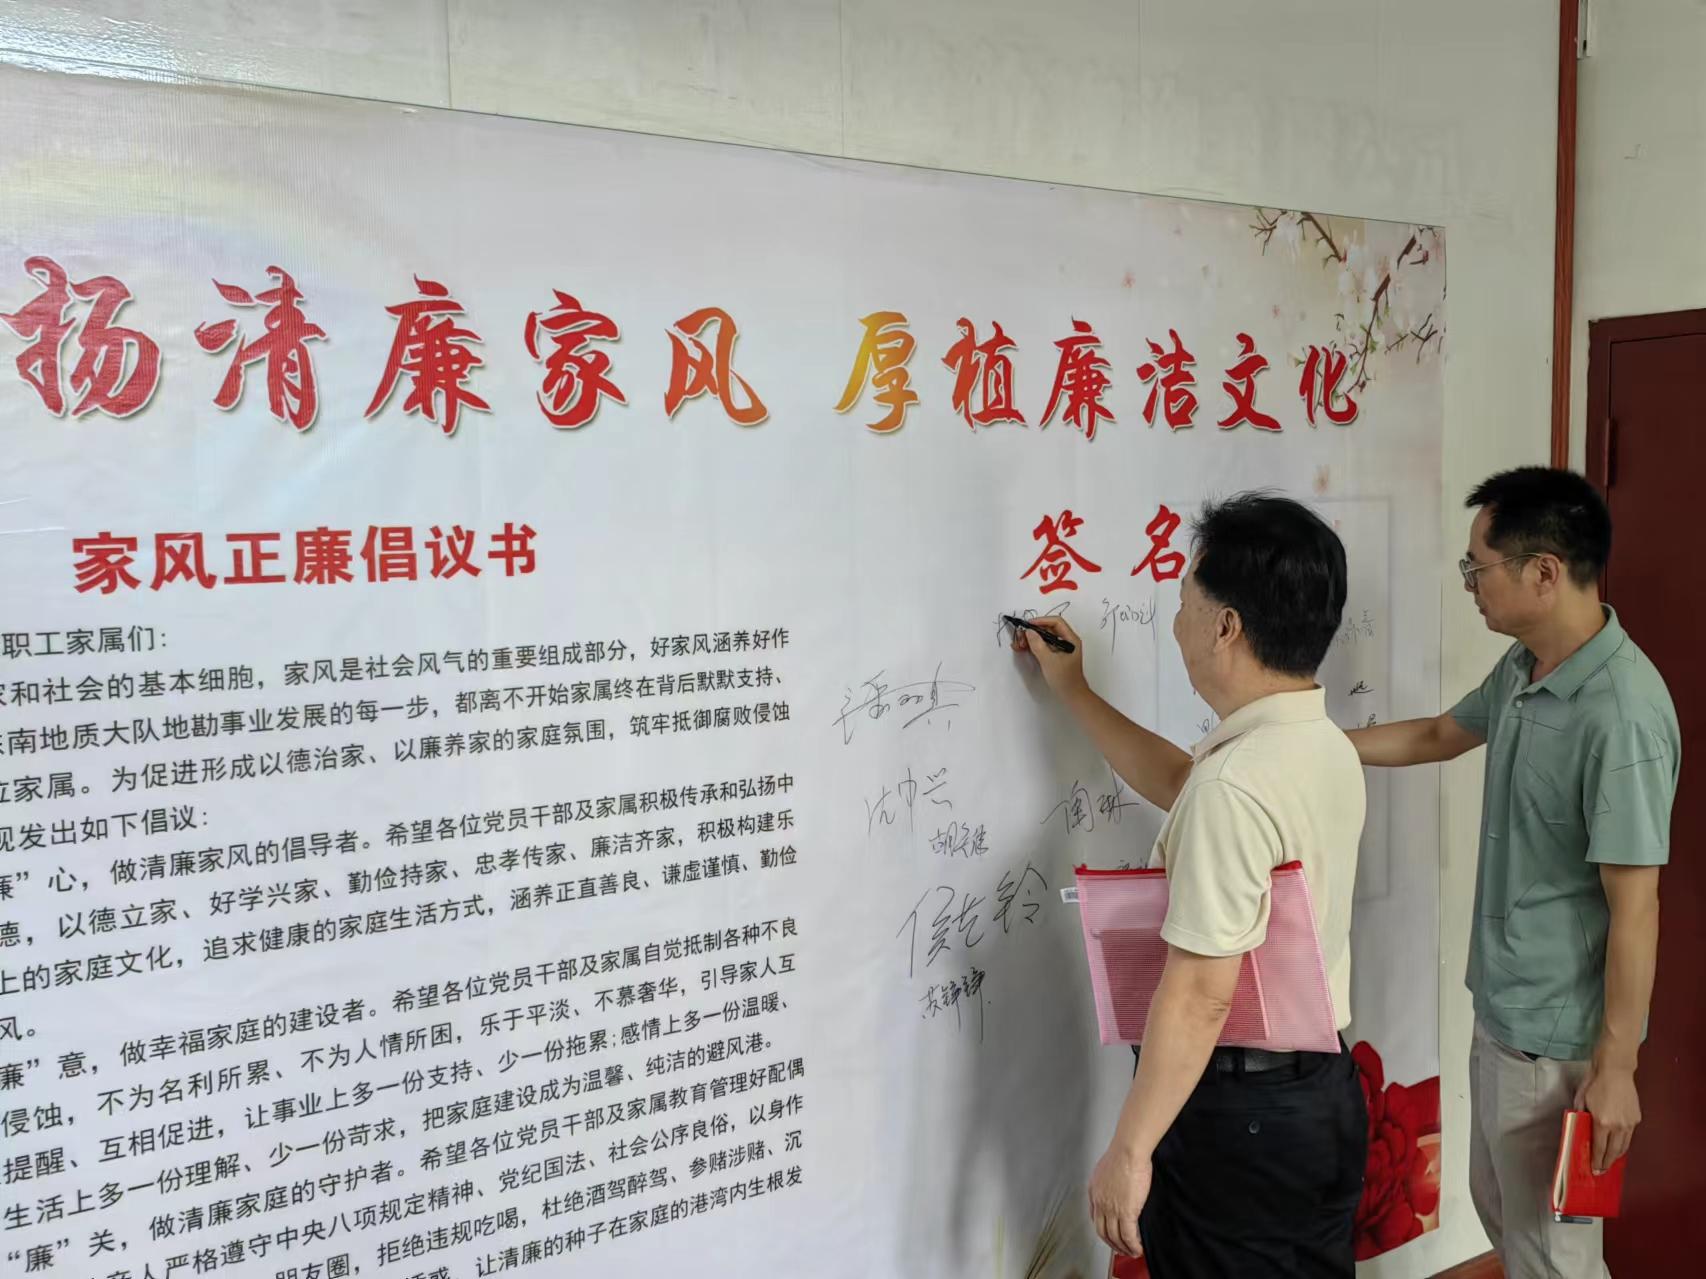 扬清廉家风 厚植廉洁文化
家风正廉倡议书
签名
职工家属们：
和社会的基本细胞，家风是社会风气的重要组成部分，好家风涵养好作
南地质大队地勘事业发展的每一步，都离不开始家属终在背后默默支持、
家属。为促进形成以德治家、以廉养家的家庭氛围，筑牢抵御腐败侵蚀
现发出如下倡议：
廉”心，做清廉家风的倡导者。希望各位党员干部及家属积极传承和弘扬中
德，以德立家、好学兴家、勤俭持家、忠孝传家、廉洁齐家，积极构建乐
上的家庭文化，追求健康的家庭生活方式，涵养正直善良、谦虚谨慎、勤俭
风。
廉”意，做幸福家庭的建设者。希望各位党员干部及家属自觉抵制各种不良
侵蚀，不为名利所累、不为人情所困，乐于平淡、不慕奢华，引导家人互
提醒、互相促进，让事业上多一份支持、少一份拖累；感情上多一份温暖、
生活上多一份理解、少一份苛求，把家庭建设成为温馨、纯洁的避风港。
“廉”关，做清廉家庭的守护者。希望各位党员干部及家属教育管理好配偶
人严格遵守中央八项规定精神、党纪国法、社会公序良俗，以身作
朋友圈，拒绝违规吃喝，杜绝酒驾醉驾、参赌涉赌、沉
让清廉的种子在家庭的港湾内生根发